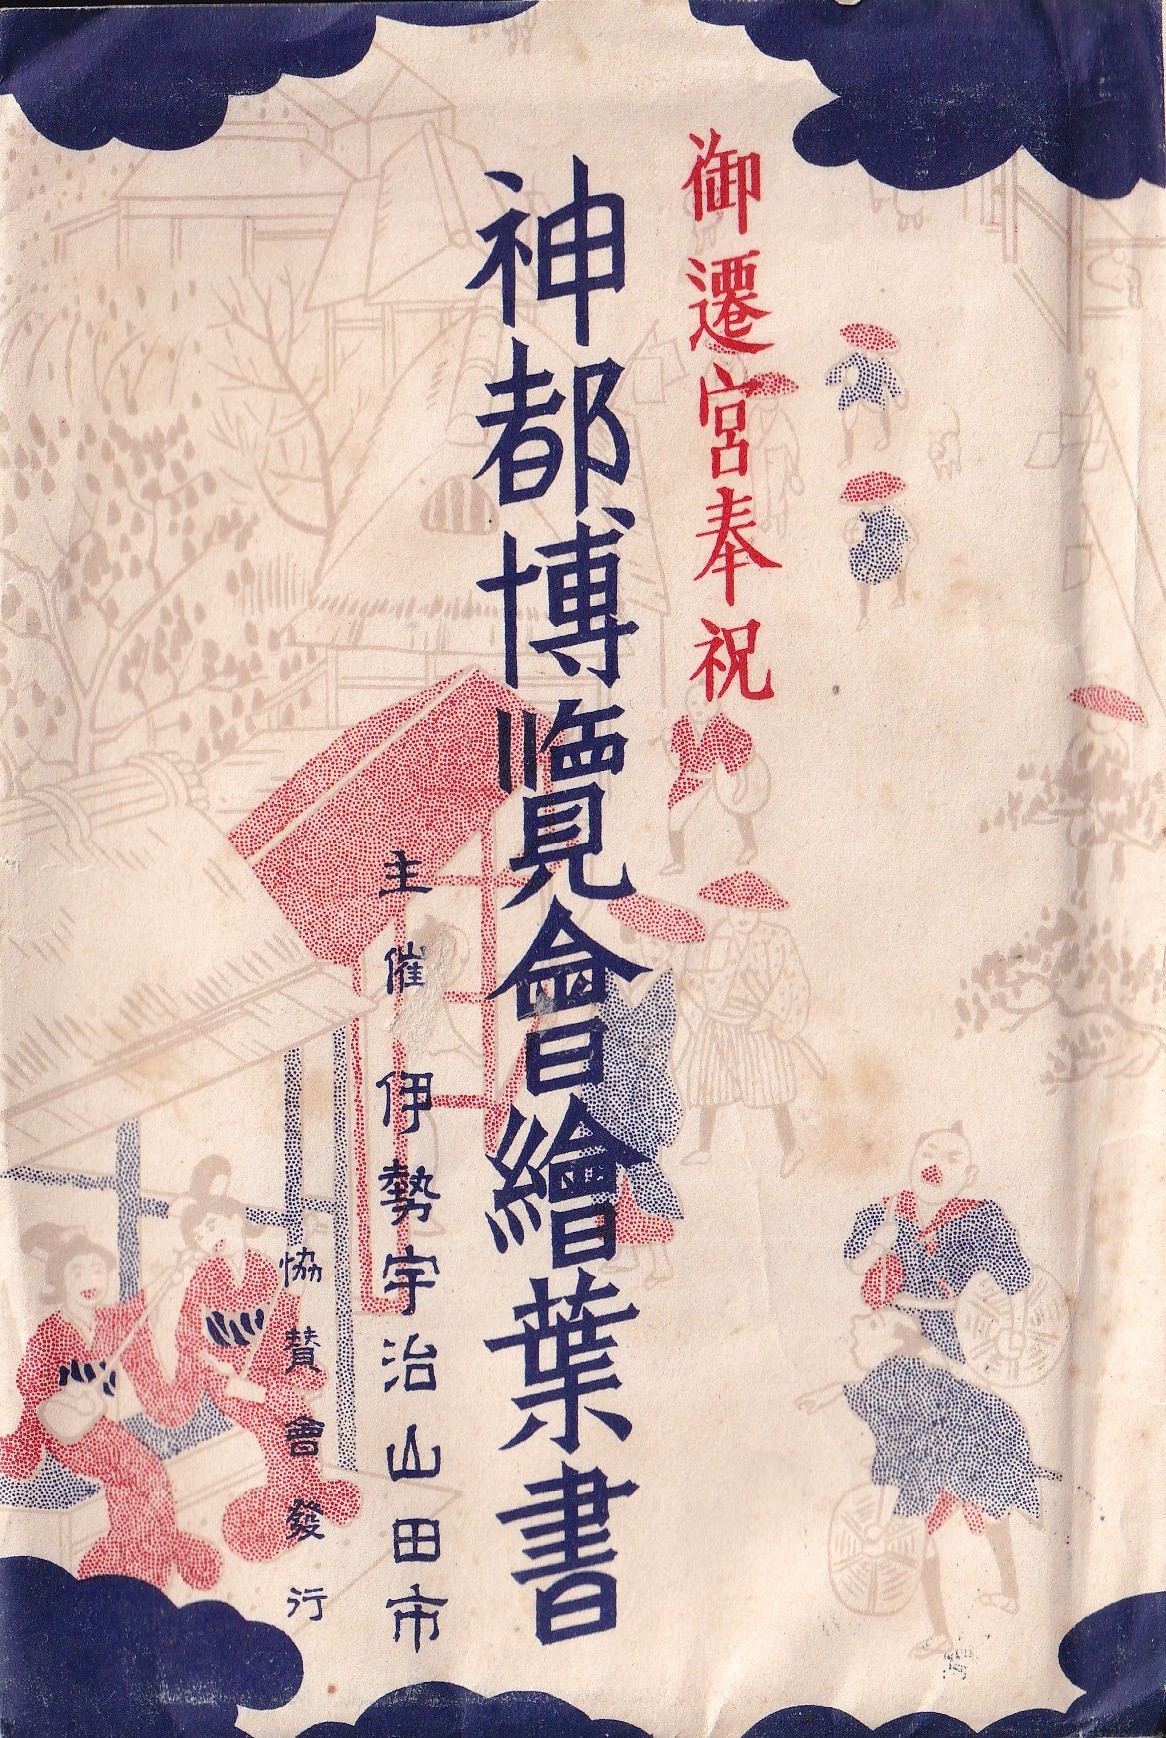 御遷宮奉祝
神都博覽會繪葉書
主催 伊勢宇治山田市
協賛會發行